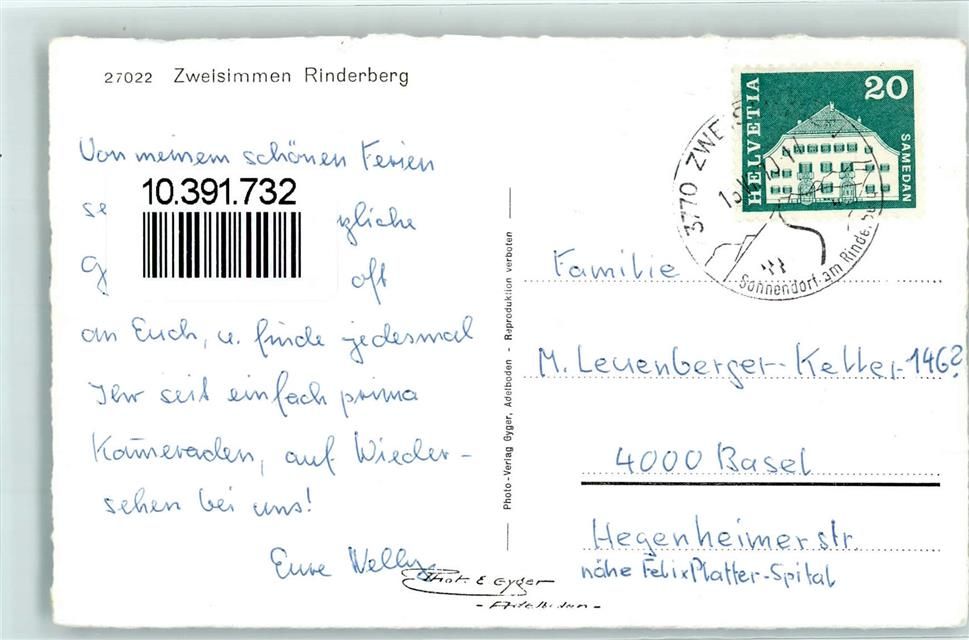 27022 Zweisimmen Rinderberg
Von meinem schönen Ferien
se
10.391.732
zliche
G
oft
an Euch, u. finde jedesmal
Ihr seit einfach prima
Kameraden, auf Wieder-
sehen bei uns!
Eure Nelly
Phot. E Gyger
- Adelboden -
Photo-Verlag Gyger, Adelboden - Reproduktion verboten
HELVETIA
20
SAMEDAN
3770 ZWEIS
Sonnendorf am Rinderberg
Familie
M. Leuenberger-Keller-146?
4000 Basel
Hegenheimerstr.
nähe Felix Platter-Spital